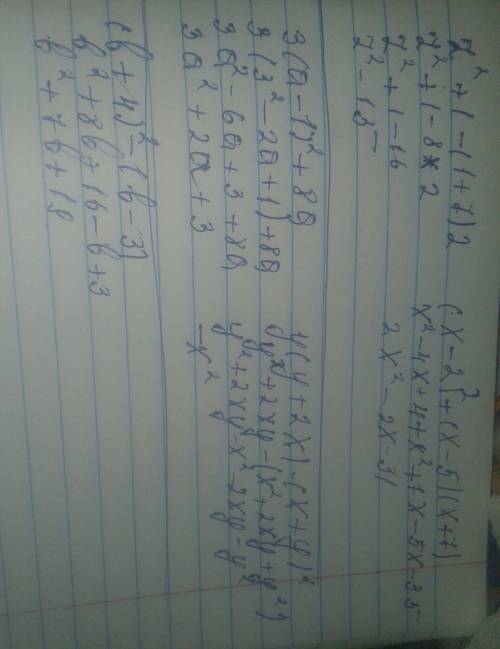 z² + 1 - (1 + 7) 2
z² + 1 - 8 * 2
z² + 1 - 16
z² - 15
(x - 2)² + (x - 5)(x + 7)
x² - 4x + 4 + x² + 7x - 5x - 35
2x² - 2x - 31
3(a - 1)² + 8a
3(3² - 2a + 1) + 8a
3a² - 6a + 3 + 8a
3a² + 2a + 3
y(y + 2x) - (x + y)²
y² + 2xy - (x² + 2xy + y²)
y² + 2xy - x² - 2xy - y²
-x²
(b + 4)² - (b - 3)
b² + 8b + 16 - b + 3
b² + 7b + 19